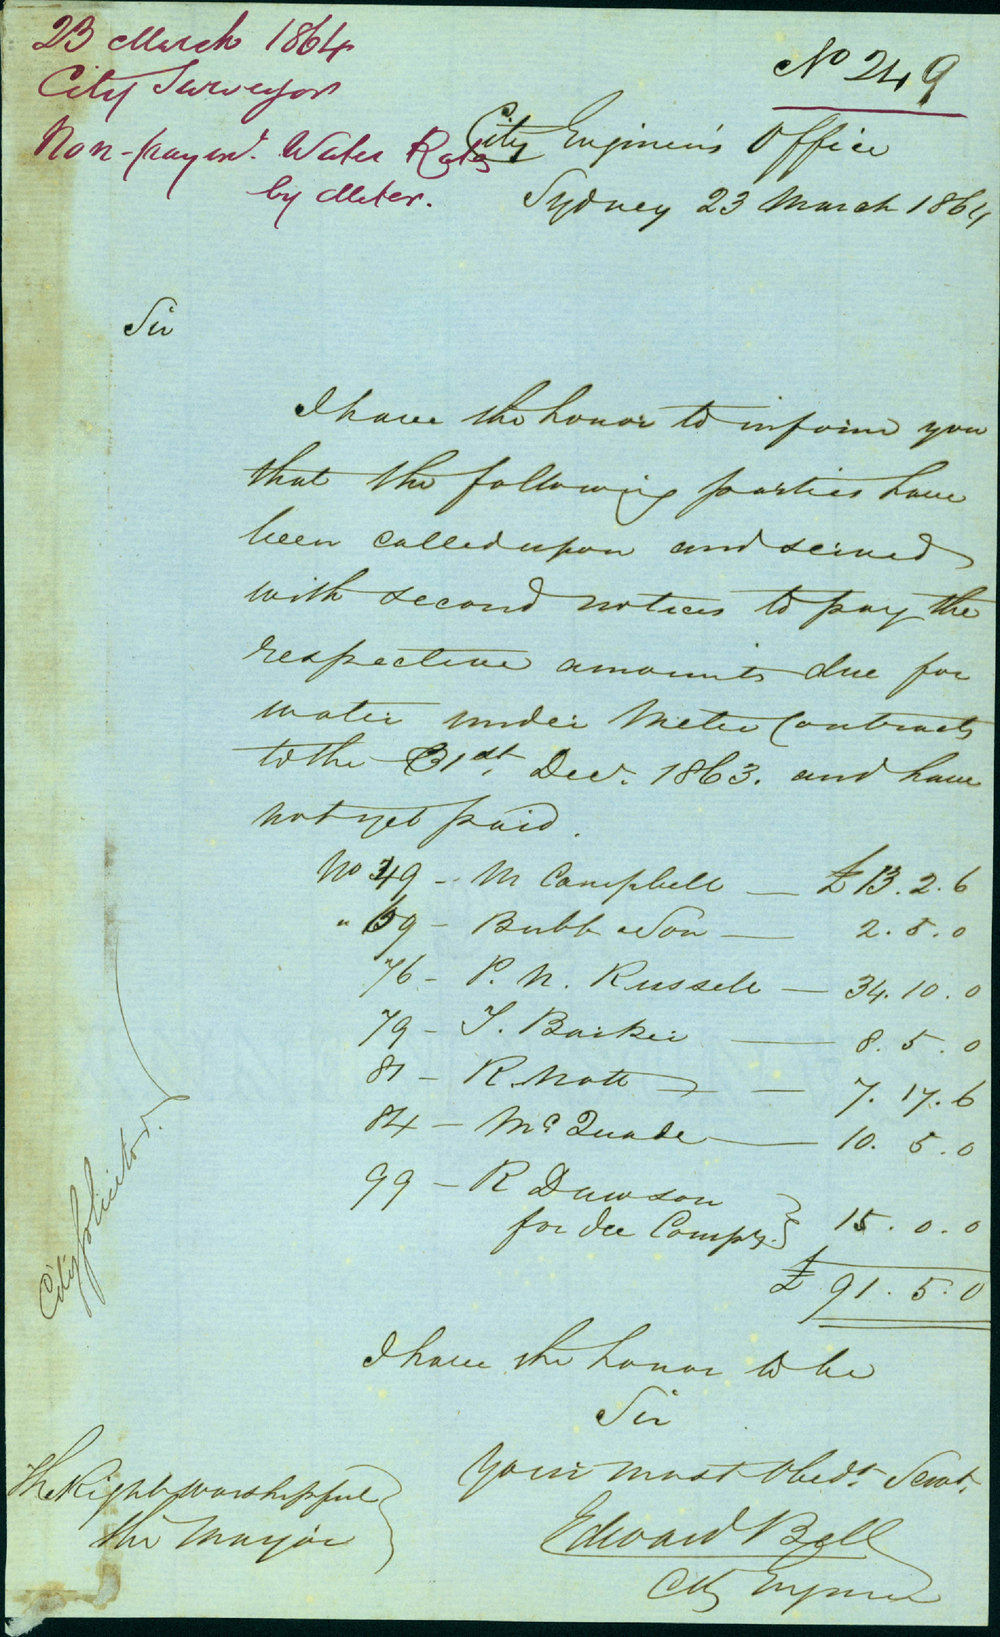 23 March 1864
City Surveyor
Non-paymt. Water Rates
by Meter.
No 249
City Engineer's Office
Sydney 23 March 1864
Sir
I have the honor to inform you
that the following parties have
been called upon and served
with second notices to pay the
respective amounts due for
water under Meter Contracts
to the 31st. Decr. 1863. and have
not yet paid.
No 49 - M Campbell - £13.2.6
" 69 - Bubb & Son - 2.5.0
76 - P. N. Russell - 34.10.0
79 - T. Barker - 8.5.0
81 - R Nott - 7.17.6
84 - McQuade - 10.5.0
99 - R Dawson
for Ice Compy. } 15.0.0
£ 91.5.0
I have the honor to be
Sir
Your most Obedt. Servt.
Edward Bell
City Engineer
The Right Worshipful
the Mayor
City Solicitor.